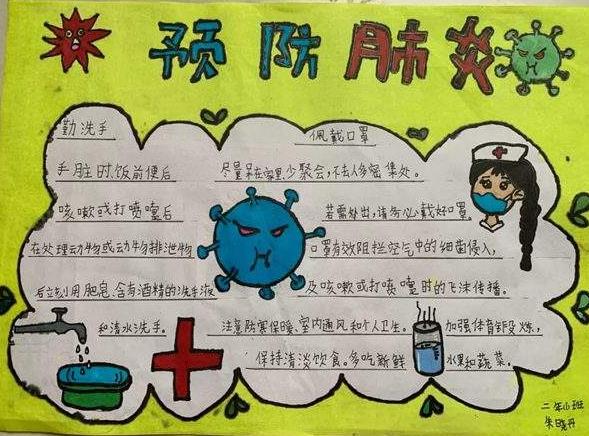 预防肺炎
勤洗手
手脏时、饭前便后
咳嗽或打喷嚏后
在处理动物或动物排泄物
后立刻用肥皂、含有酒精的洗手液
和清水洗手。
佩戴口罩
尽量呆在家里,少聚会,不去人多密集处。
若需外出,请务必戴好口罩。
口罩有效阻拦空气中的细菌侵入,
及咳嗽或打喷嚏时的飞沫传播。
注意防寒保暖、室内通风和个人卫生。加强体育锻炼,
保持清淡饮食。多吃新鲜水果和蔬菜。
二年(1)班
朱晓丹